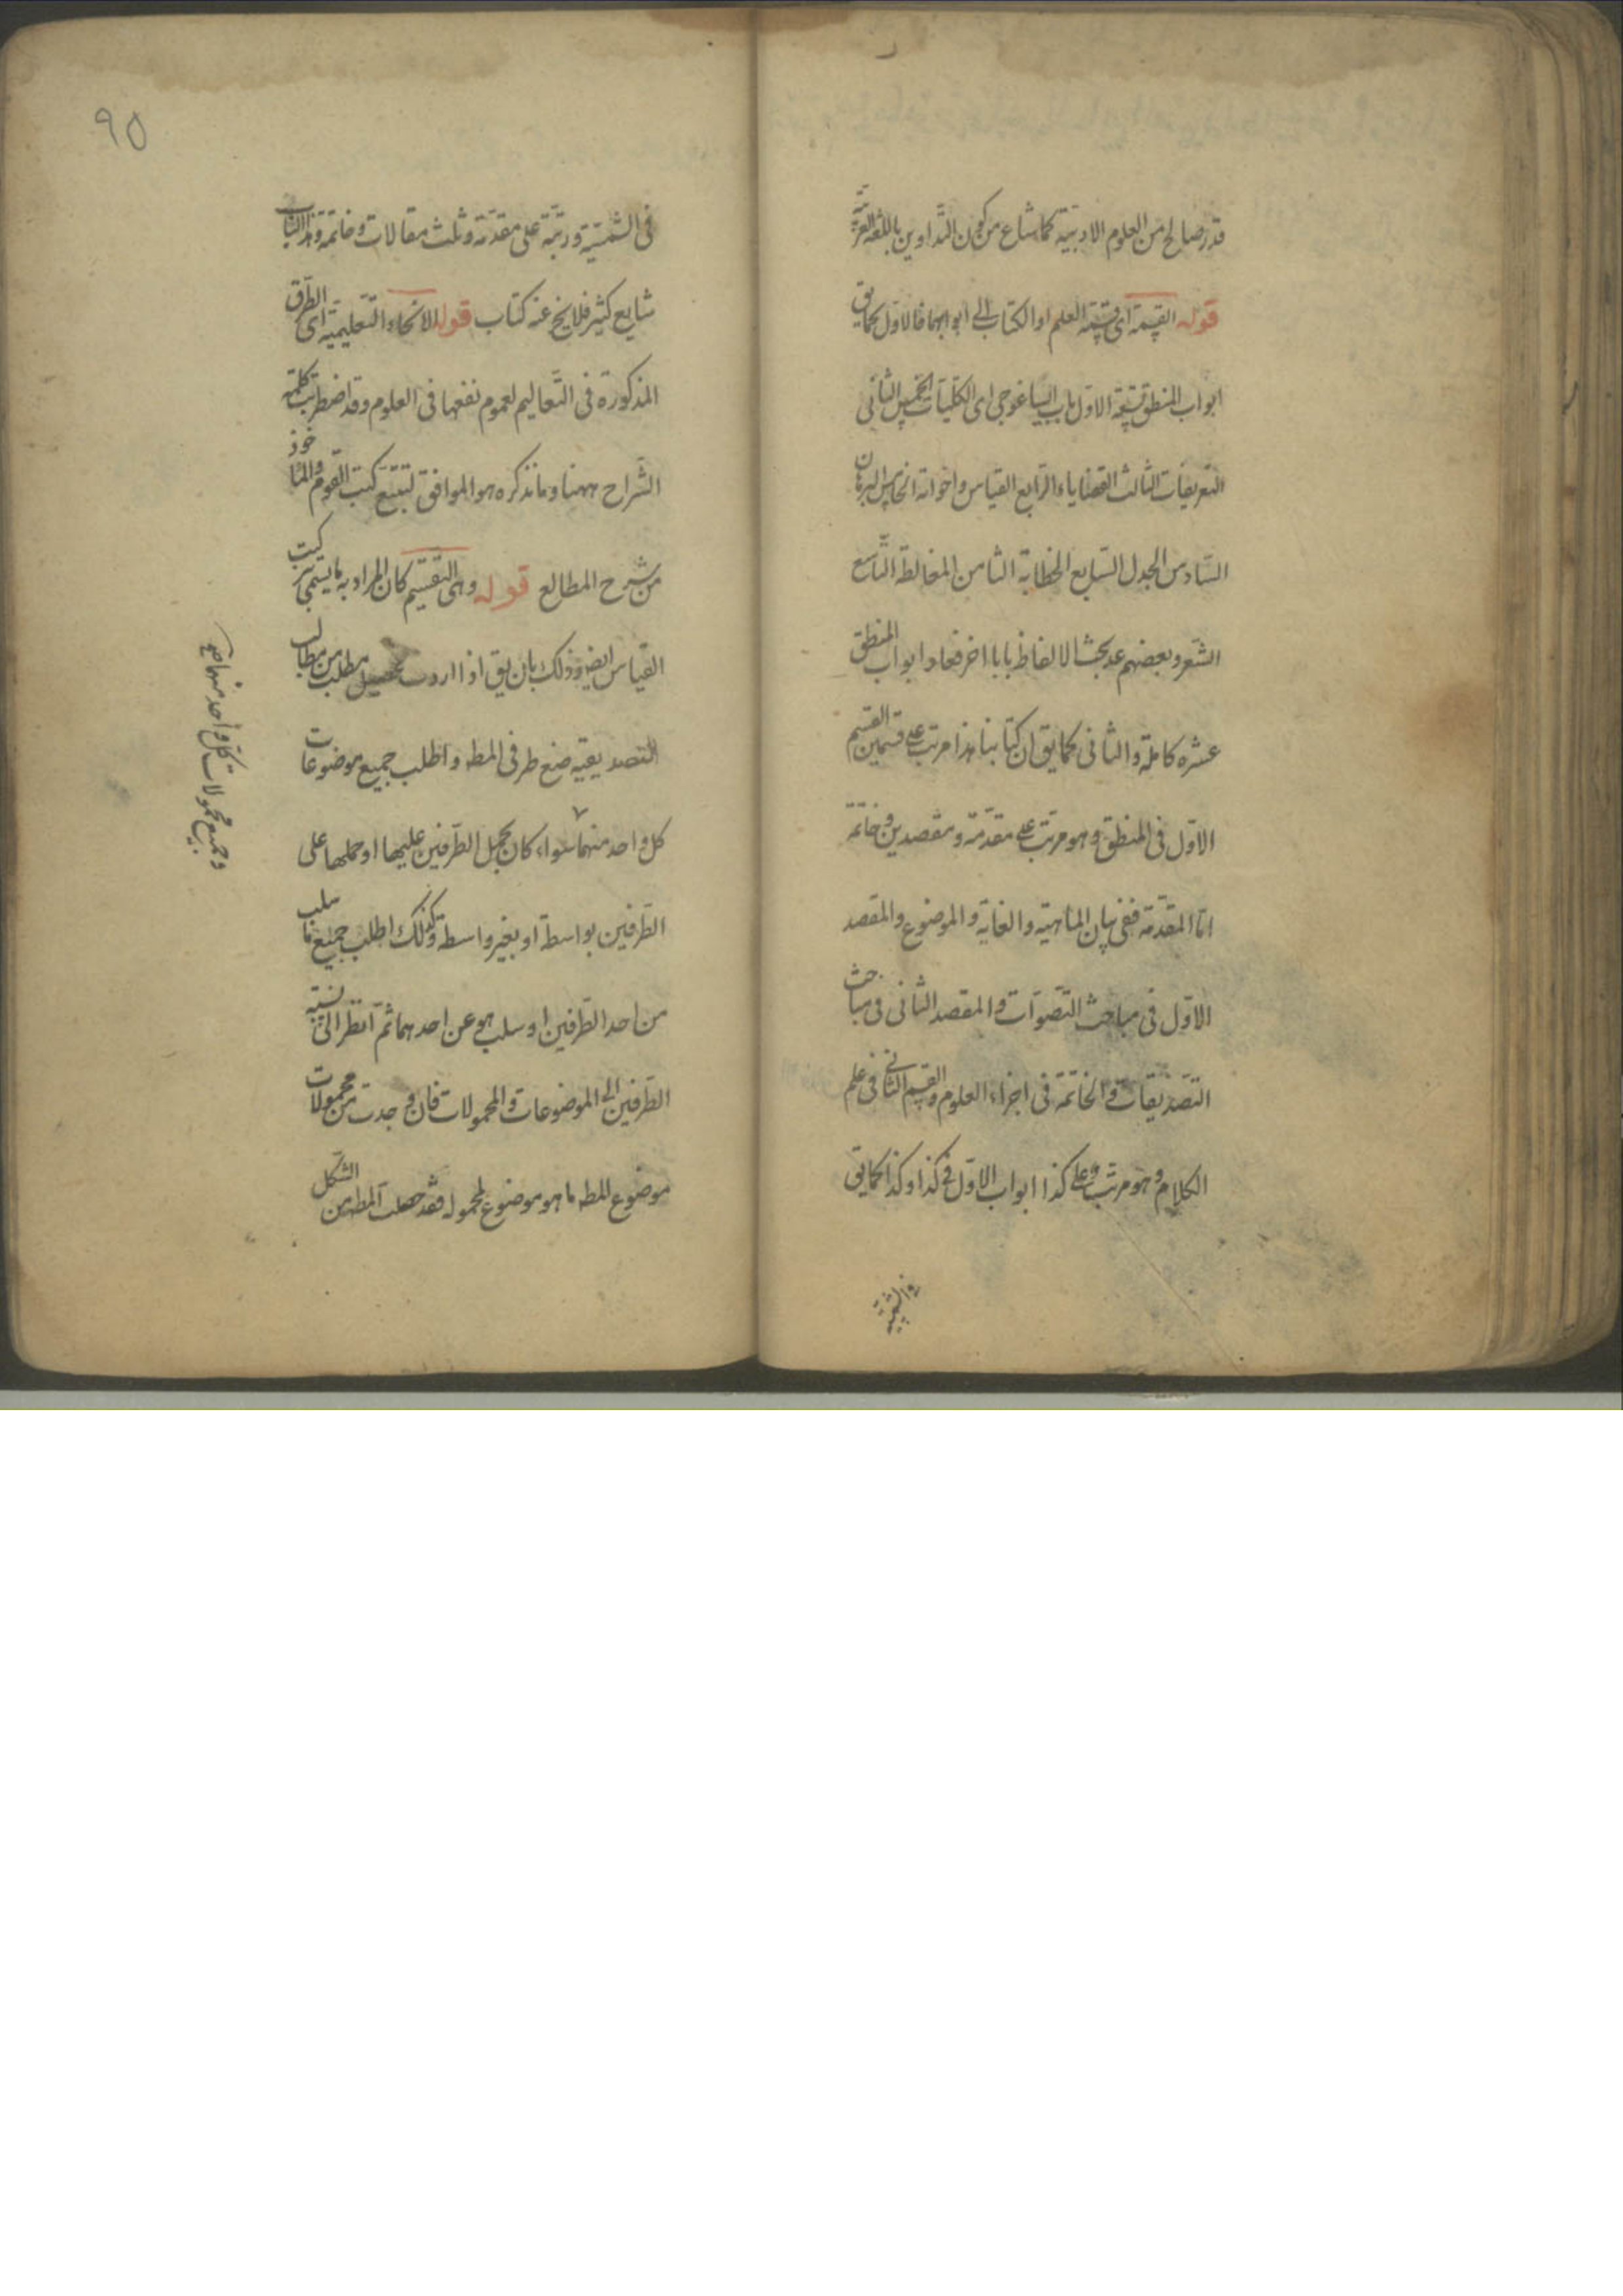 قدر صالح من العلوم الادبية كما شاع من كون التداوين باللغة العربية
قوله القسمة اى قسمة العلم او الكتاب الى ابوابهما فالاول كما يق
ابواب المنطق تسعة الاول باب ايساغوجى اى الكليات الخمس الثانى
التعريفات الثالث القضايا والرابع القياس واخواته الخامس البرهان
السادس الجدل السابع الخطابة الثامن المغالطة التاسع
الشعر وبعضهم عد بحث الالفاظ بابا اخر فعاد ابواب المنطق
عشره كاملة والثانى كما يق ان كتابنا هذا مرتب على قسمين القسم
الاول فى المنطق وهو مرتب على مقدمة ومقصدين وخاتمة
اما المقدمة ففى بيان الماهية والغاية والموضوع والمقصد
الاول فى مباحث التصورات والمقصد الثانى فى مباحث
التصديقات والخاتمة فى اجزاء العلوم والقسم الثانى فى علم
الكلام وهو مرتب على كذا ابواب الاول فى كذا وكذا كما يق
90
فى الشمسية ورتبته على مقدمة وثلث مقالات وخاتمة وهذا الثانى
شايع كثير فلا يخ عنه كتاب قوله الانحاء التعليمية اى الطرق
المذكورة فى التعاليم لعموم نفعها فى العلوم وقد اضطربت كلمة
الشراح ههنا وما نذكره هو الموافق لتتبع كتب القوم والماخوذ
من شرح المطالع قوله وهى التقسيم كان المراد به ما يسمى تركيب
القياس ايضا وذلك بان يق اذا اردت تحصيل مطلب من مطالب
التصديقية ضع طرفى المطه واطلب جميع موضوعات
كل واحد منهما سواء كان بحمل الطرفين عليها او حملها على
الطرفين بواسطة او بغير واسطة وكذلك اطلب جميع ما سلب
من احد الطرفين او سلب هو عن احدهما ثم انظر الى نسبة
الطرفين الى الموضوعات والمحمولات فان وجدت من محمولات
موضوع المطه ما هو موضوع لمحموله فقد حصلت المطه من الشكل
وجميع محمولات كل واحد منهما صح